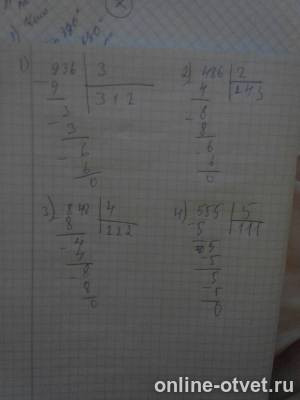 1) 936 | 3
9 | 312
- 3
3
- 6
6
0
2) 486 | 2
4 | 243
- 8
8
- 6
6
0
3) 848 | 4
8 | 212
- 4
4
- 8
8
0
4) 555 | 5
- 5 | 111
5
- 5
5
- 5
0
online-otvet.ru